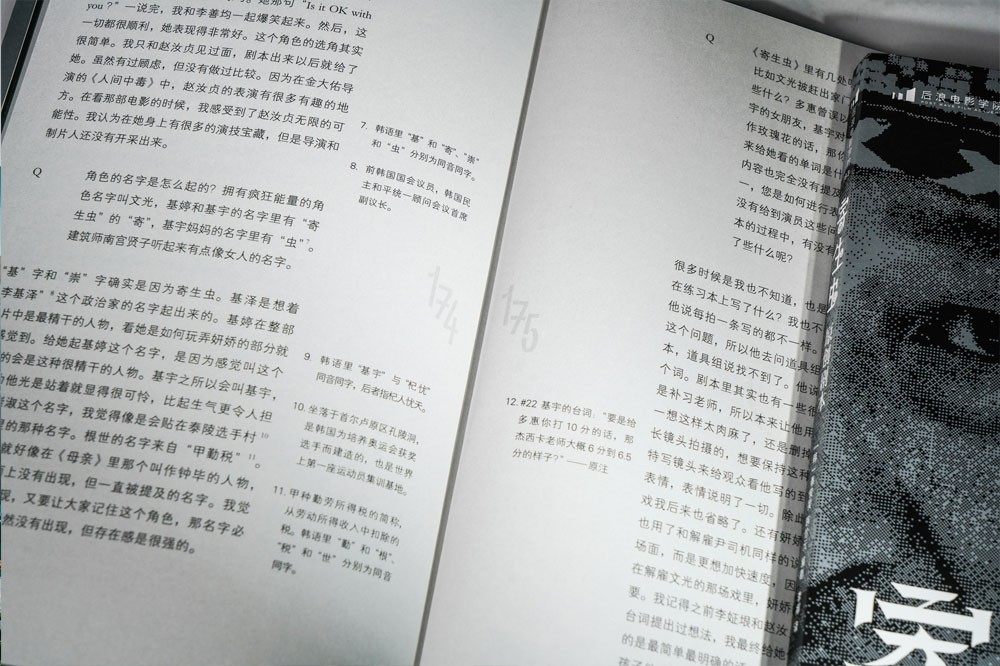 一说完，我和李善均一起爆笑起来。然后，这
you？"一说完
一切都很顺利，她表现得非常好。这个角色的选角其实
很简单。我只和赵汝贞见过面，剧本出来以后就给了
她。虽然有过顾虑，但没有做过比较。因为在金大佑导
演的《人间中毒》中，赵汝贞的表演有很多有趣的地
方。在看那部电影的时候，我感受到了赵汝贞无限的可
能性。我认为在她身上有很多的演技宝藏，但是导演和
制片人还没有开采出来。
Q
角色的名字是怎么起的？拥有疯狂能量的角
色名字叫文光，基婷和基宇的名字里有“寄
生虫”的“寄”，基宇妈妈的名字里有“虫”7。
建筑师南宫贤子听起来有点像女人的名字。
“基”字和“崇”字确实是因为寄生虫。基泽是想着
李基泽”8这个政治家的名字起出来的。基婷在整部
片中是最精干的人物，看她是如何玩弄妍娇的部分就
感觉到。给她起基婷这个名字，是因为感觉叫这个
的会是这种很精干的人物。基宇之所以会叫基宇，
为他光是站着就显得很可怜，比起生气更令人担
这个名字，我觉得像是会贴在泰陵选手村10
的那种名字。根世的名字来自“甲勤税”11。
就好像在《母亲》里那个叫作钟毕的人物，
上没有出现，但一直被提及的名字。我觉
现，又要让大家记住这个角色，那名字必
然没有出现，但存在感是很强的。
7. 韩语里“基”和“寄”、“崇”
和“虫”分别为同音同字。
8. 前韩国国会议员，韩国民
主和平统一顾问会议首席
副议长。
9. 韩语里“基宇”与“杞忧”
同音同字，后者指杞人忧天。
10. 坐落于首尔卢原区孔陵洞，
是韩国为培养奥运会获奖
选手而建造的，也是世界
上第一座运动员集训基地。
11. 甲种勤劳所得税的简称，
从劳动所得收入中扣除的
税。韩语里“勤”和“根”、
“税”和“世”分别为同音
同字。
174
175
Q
《寄生虫》里有几处
比如文光被赶出家门
些什么？多惠曾误以
宇的女朋友，基宇对
作玫瑰花的话，那
来给她看的单词是什
内容也完全没有提及
一，您是如何进行表
没有给到演员这些问
本的过程中，有没有
了些什么呢？
很多时候是我也不知道，也是
在练习本上写了什么？我也不
他说每拍一条写的都不一样。
这个问题，所以他去问道具组
本，道具组说找不到了。他说
个词。剧本里其实也有一些很
是补习老师，所以本来让他用
一想这样太肉麻了，还是删掉
长镜头拍摄的，想要保持这种
特写镜头来给观众看他写的到
表情，表情说明了一切。除此
戏我后来也省略了。还有妍娇
也用了和解雇尹司机同样的说
场面，而是更想加快速度，因
在解雇文光的那场戏里，妍娇
要。我记得之前李姃垠和赵汝
台词提出过想法，我最终给她
的是最简单最明确的
12. #22 基宇的台词：“要是给
多惠你打10分的话，那
杰西卡老师大概6分到6.5
分的样子？”——原注
后浪电影学院